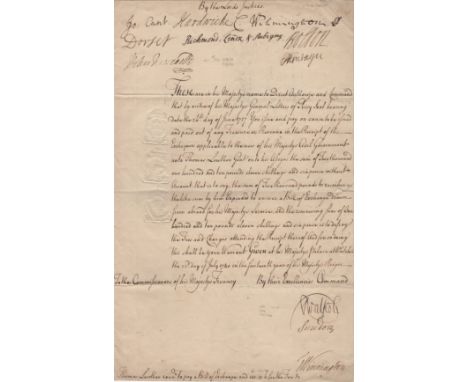 By the Lords Justices
Jo. Cant Hardwicke C Wilmington P
Dorset Richmond, Lenox & Aubigny Bolton
Holles Newcastle Montagu
These are in his Majestys name to Direct Authorize and Command
that by virtue of his Majestys General Letters of Privy Seal bearing
date the day of June 1727 You Issue and pay or cause to be Issued
and paid out of any Treasure or Revenue in the Receipt of the
Exchequer applicable to the uses of his Majestys Civil Government
unto Thomas Lowther Gent or to his Assigns the sum of Two thousand
one hundred and ten pounds eleven shillings and six pence without
Account that is to say the sum of Two thousand pounds to reimburse
the like sum by him Expended to answer a Bill of Exchange drawn
from abroad for his Majestys Service and the remaining sum of One
hundred and ten pounds eleven shillings and six pence to defray
the Fees and Charges attending the Receipt thereof And for so doing
this shall be your Warrant Given at his Majestys Palace at Whitehall
the day of July 1740 in the fourteenth year of his Majestys Reign
To the Commissioners of his Majestys Treasury By their Excellencies Command
RWalpole
Sundon
TWinnington
Thomas Lowther to pay a Bill of Exchange and